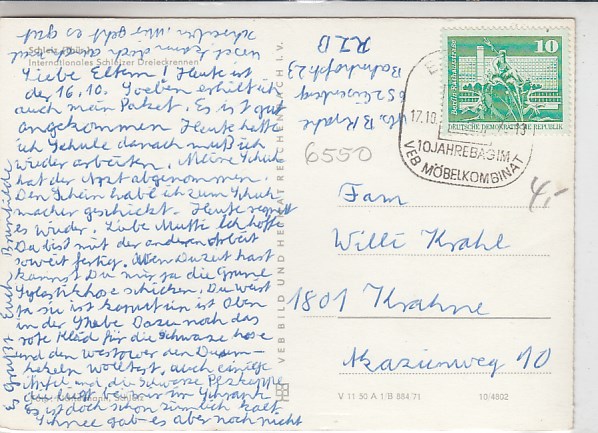 Schleiz (Thür.)
Internationales Schleizer Dreieckrennen
Liebe Eltern! Heute ist
der 16.10. Soeben erhielt ich
auch mein Paket. Es ist gut
angekommen Heute hatte
ich Schule danach muß ich
wieder arbeiten. Meine Schuhe
hat der Arzt abgenommen.
Den Schein habe ich zum Schuh
macher geschickt. Heute regnet
es wieder. Liebe Mutti Ich hoffe
Du bist mit der anderen Arbeit
soweit fertig. Wen Du zeit hast
kannst Du mir ja die Grüne
hose schicken. Du warst
ja sie ist kaputt sie ist Oben
in der Stube Dazu noch das
rote Kleid für die schwarze hose
und den westower den Du um-
hekeln wolltest. auch einige
Äpfel und die schwarze Pelzkappe
die liegt bei mir im Schrank
Es ist doch schon zimlich kalt
Schnee gab es aber noch nicht
Es Grüßt Euch Brunhilde
VEB BILD UND HEIMAT REICHENBACH I. V.
RIB
Bahnhofstr 23
6550
10
Berlin, Rathausstraße
DEUTSCHE DEMOKRATISCHE REPUBLIK
17.10.
10JAHRE BAGIMA
VEB MÖBELKOMBINAT
4,-
Fam
Willi Krahl
1801 Krahne
Mazienweg 10
V 11 50 A 1/B 884/71
10/4802